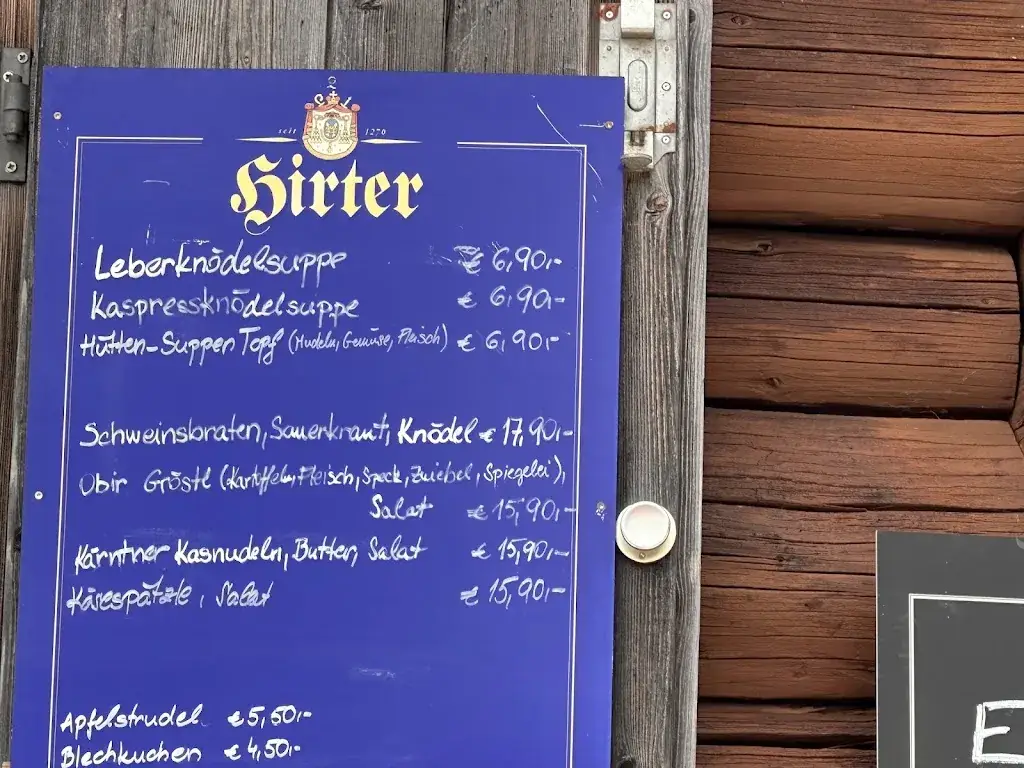 seit 1270
Hirter
Leberknödelsuppe € 6,90,-
Kaspressknödelsuppe € 6,90,-
Hütten-Suppen Topf (Nudeln, Gemüse, Fleisch) € 6,90,-
Schweinsbraten, Sauerkraut, Knödel € 17,90,-
Obir Gröstl (Kartoffeln, Fleisch, Speck, Zwiebel, Spiegelei),
Salat € 15,90,-
Kärntner Kasnudeln, Butter, Salat € 15,90,-
Käsespätzle, Salat € 15,90,-
Apfelstrudel € 5,50,-
Blechkuchen € 4,50,-
E